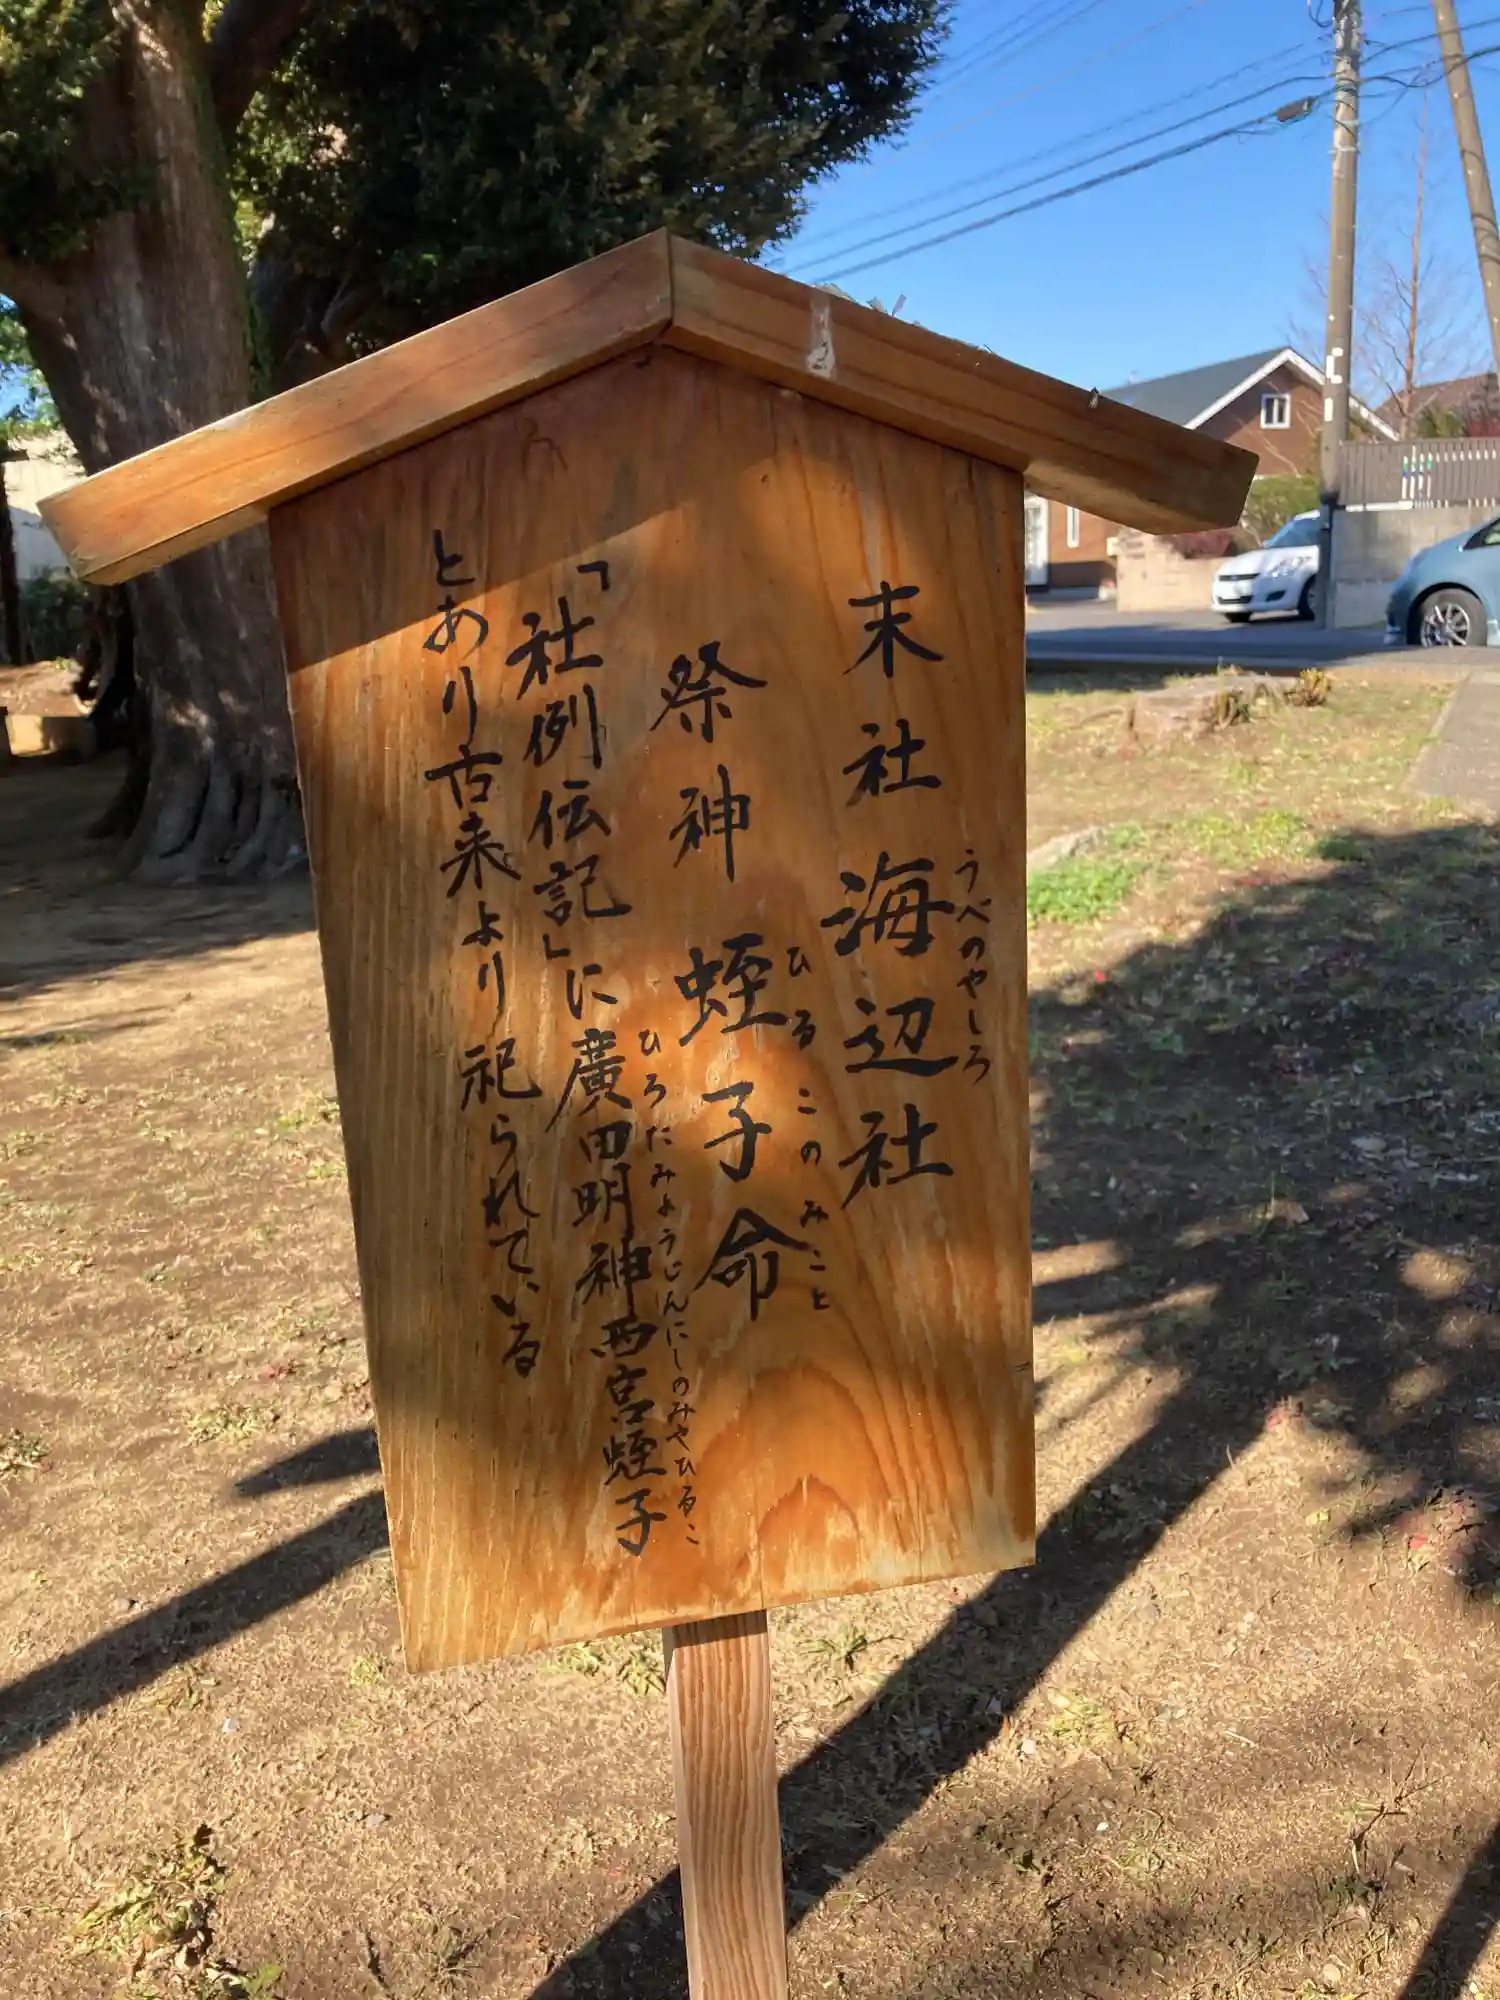 末社 海辺社
うべのやしろ
祭神 蛭子命
ひるこのみこと
「社例伝記」に廣田明神西宮蛭子
ひろたみょうじんにしのみやひるこ
とあり古来より祀られている